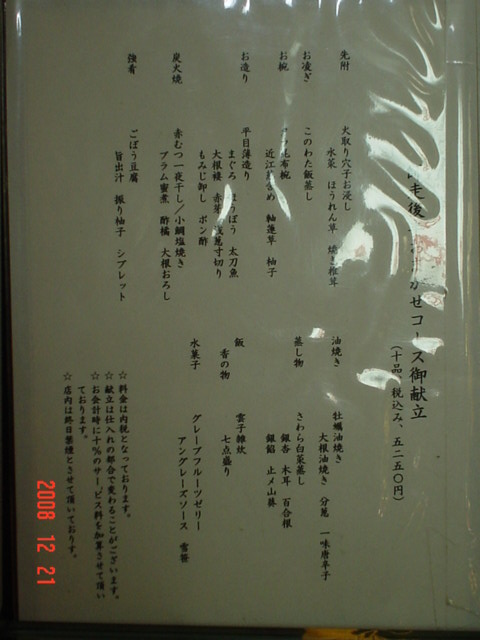 走後 かせコース御献立
(十品、税込み、五二五〇円)
先附
火取り穴子お浸し
水菜 ほうれん草 焼き椎茸
お凌ぎ
このわた飯蒸し
お椀
昆布椀
近江 軸蓮草 柚子
お造り
平目薄造り
まぐろ ほうぼう 太刀魚
大根褄 赤芽 浅葱寸切り
もみじ卸し ポン酢
炭火焼
赤むつ一夜干し/小鯛塩焼き
プラム蜜煮 酢橘 大根おろし
強肴
ごぼう豆腐
旨出汁 振り柚子 シブレット
油焼き
牡蠣油焼き
大根油焼き 分葱 一味唐辛子
蒸し物
さわら白菜蒸し
銀杏 木耳 百合根
銀餡 止メ山葵
飯
雲子雑炊
香の物
七点盛り
水菓子
グレープフルーツゼリー
アングレーズソース 雪笹
☆料金は内税となっております。
☆献立は仕入れの都合で変わることがございます。
☆お会計時に十%のサービス料を加算させて頂い
ております。
☆店内は終日禁煙とさせて頂いております。
2008 12 21